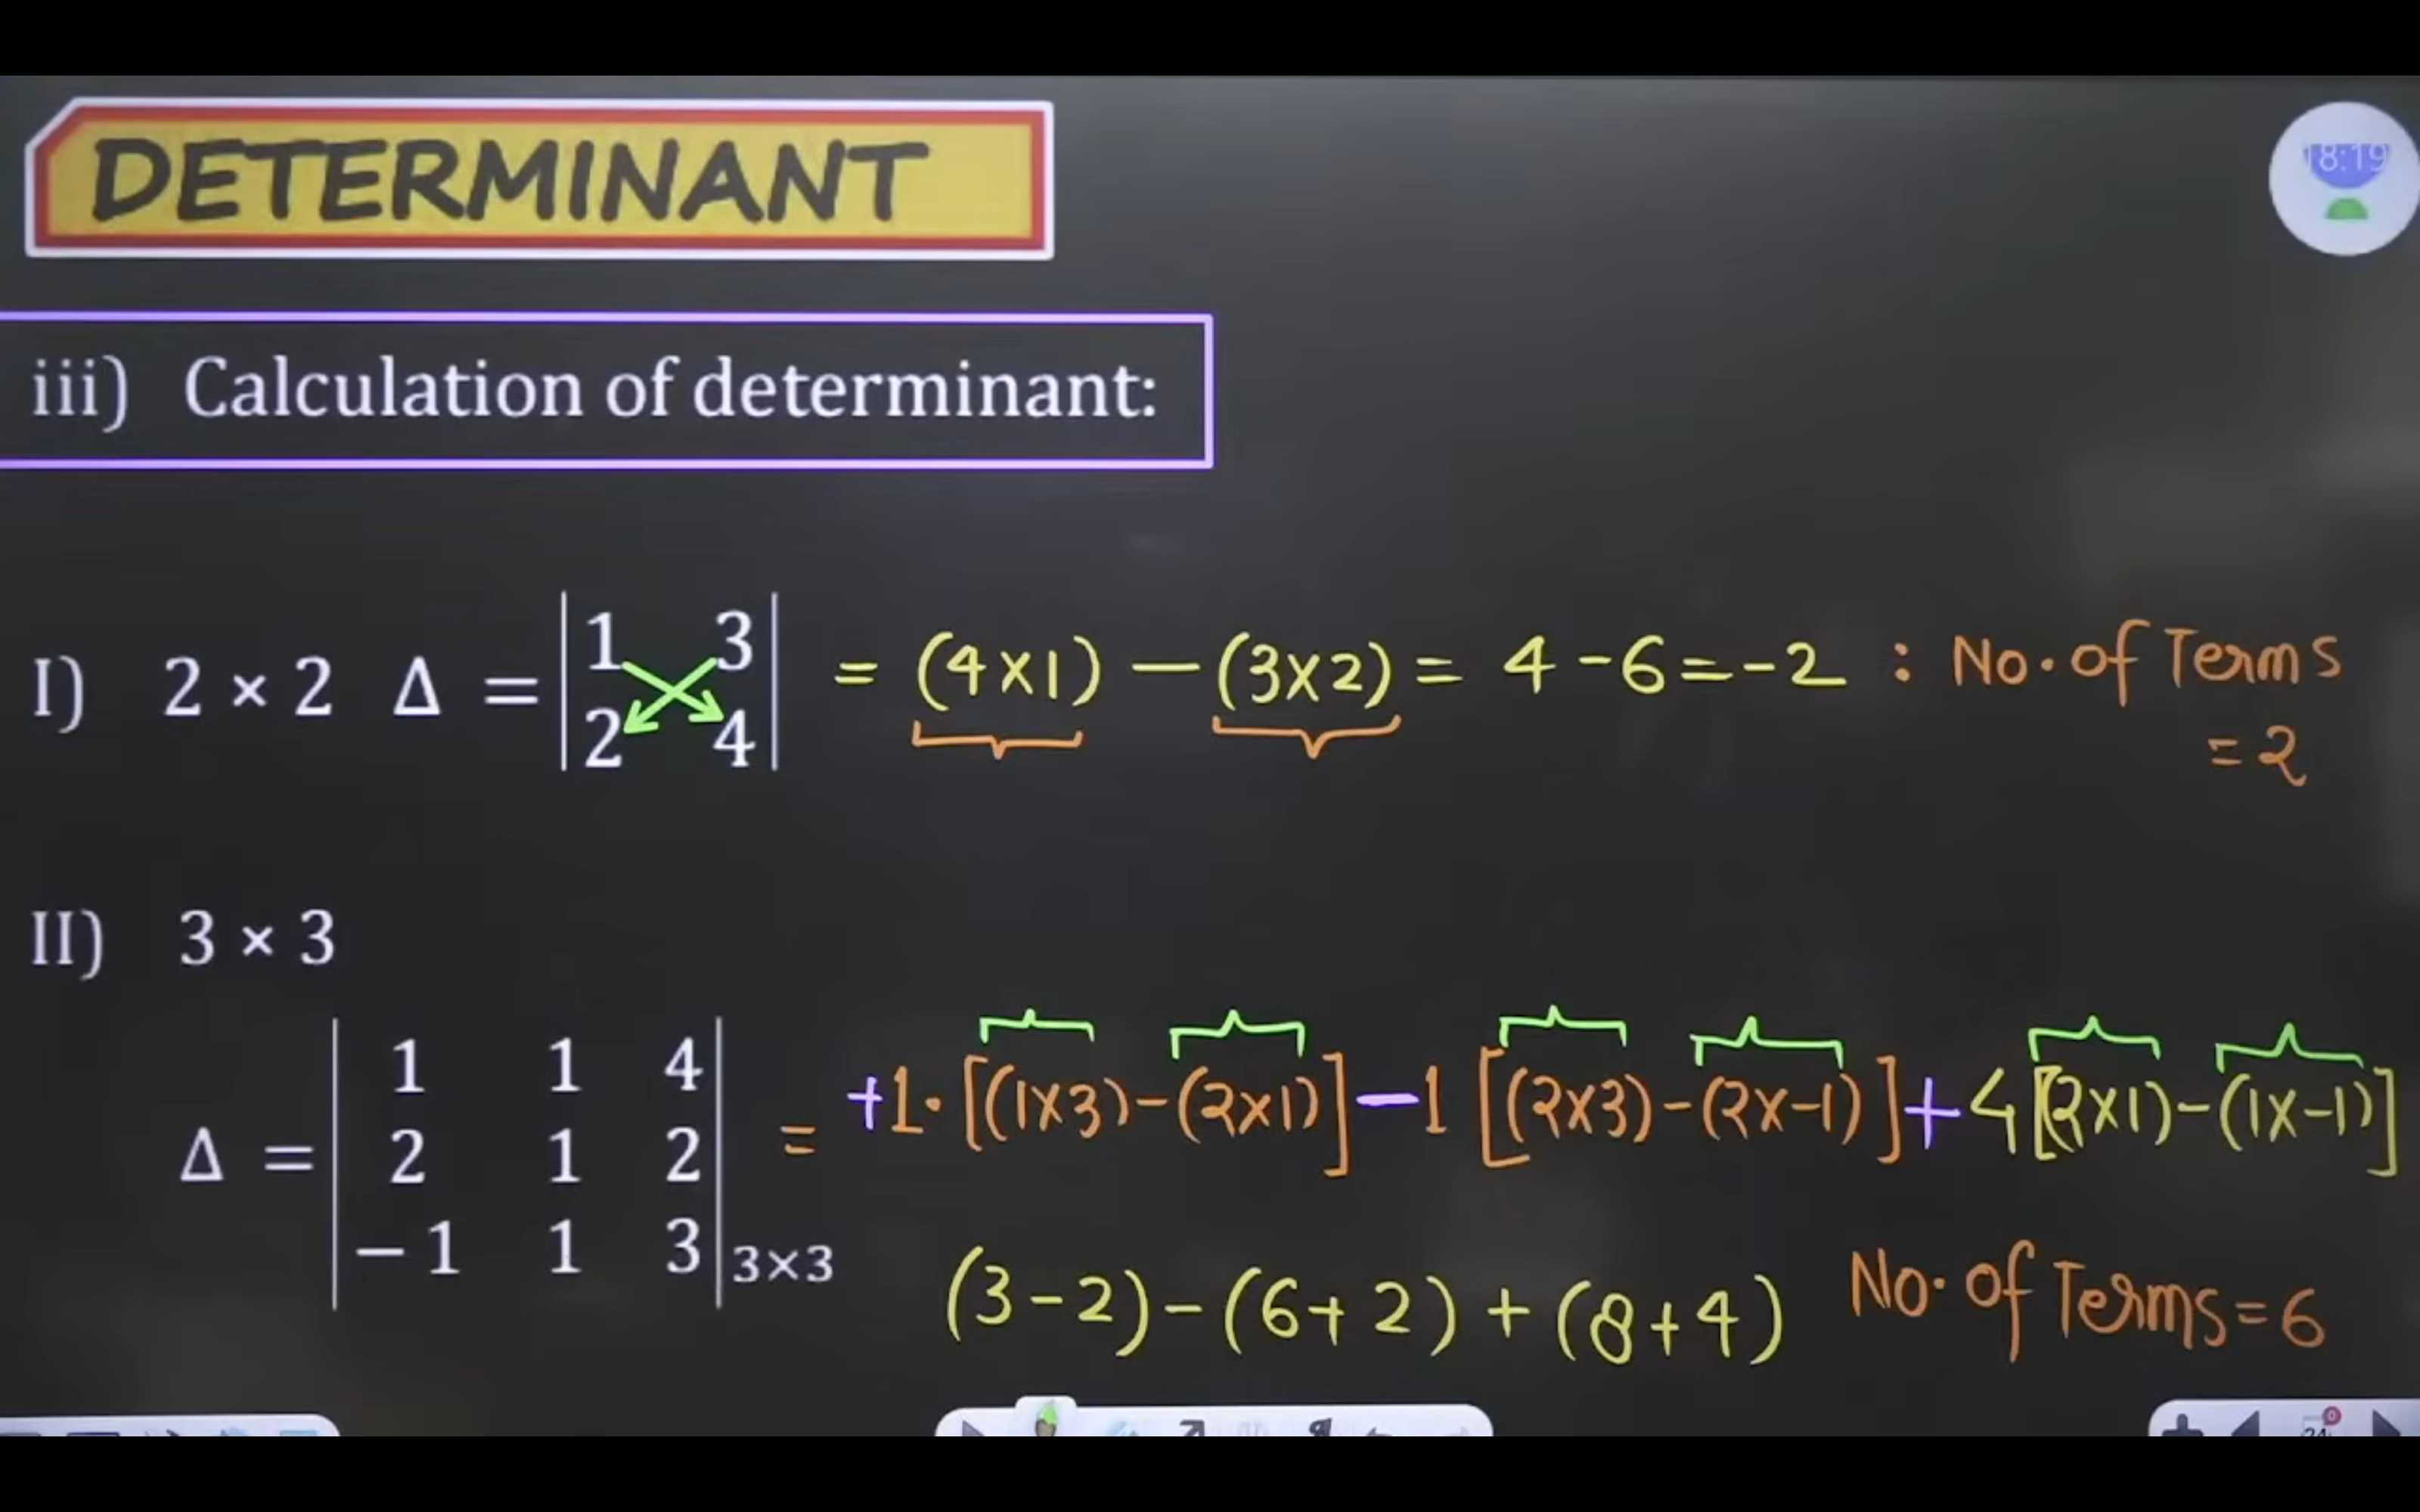 DETERMINANT
18:19
iii) Calculation of determinant:
I) 2 × 2 Δ = |1 3| = (4×1) − (3×2) = 4 − 6 = −2 : No. of Terms
|2 4| = 2
II) 3 × 3
Δ = |1 1 4| = +1·[(1×3)−(2×1)]−1[(2×3)−(2×−1)]+4[(2×1)−(1×−1)]
|2 1 2|
|−1 1 3| 3×3 (3−2)−(6+2)+(8+4) No. of Terms = 6